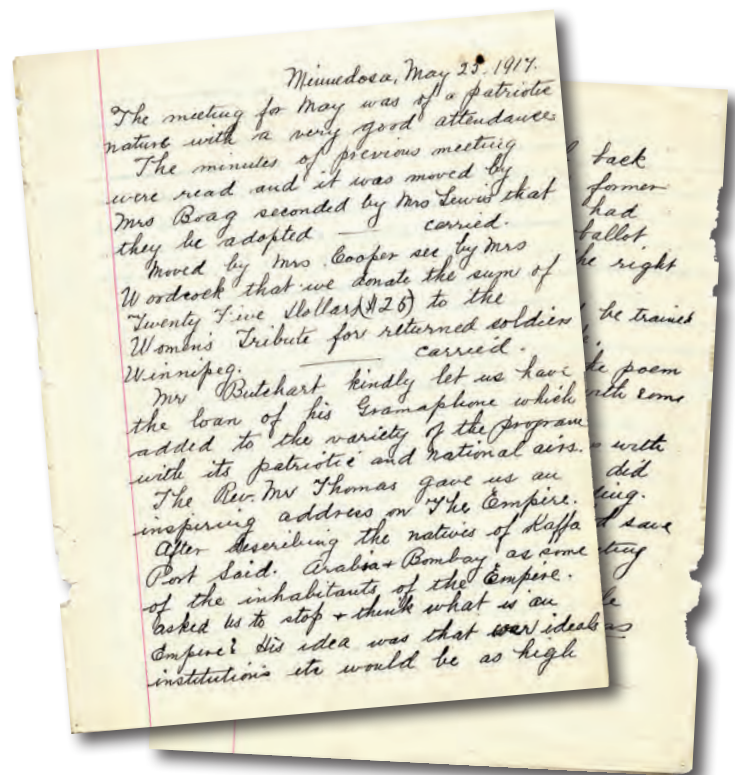 Minnedosa, May 25. 1917.
The meeting for May was of a patriotic
nature with a very good attendance.
The minutes of previous meeting
were read and it was moved by
Mrs Boag seconded by Mrs Lewis that
they be adopted — carried.
Moved by Mrs. Cooper sec by Mrs
Woodcock that we donate the sum of
Twenty Five Dollars ($25) to the
Womens Tribute for returned soldiers
Winnipeg. — carried.
Mr Butchart kindly let us have
the loan of his Gramaphone which
added to the variety of the program
with its patriotic and national airs.
The Rev. Mr Thomas gave us an
inspiring address on The Empire.
After describing the natives of Kaffa
Port Said. Arabia + Bombay as some
of the inhabitants of the Empire.
asked us to stop + think what is an
Empire? His idea was that our ideals
institutions etc would be as high
back
former
had
ballot
he right
be trained
poem
with some
with
did
ling.
save
ting
as